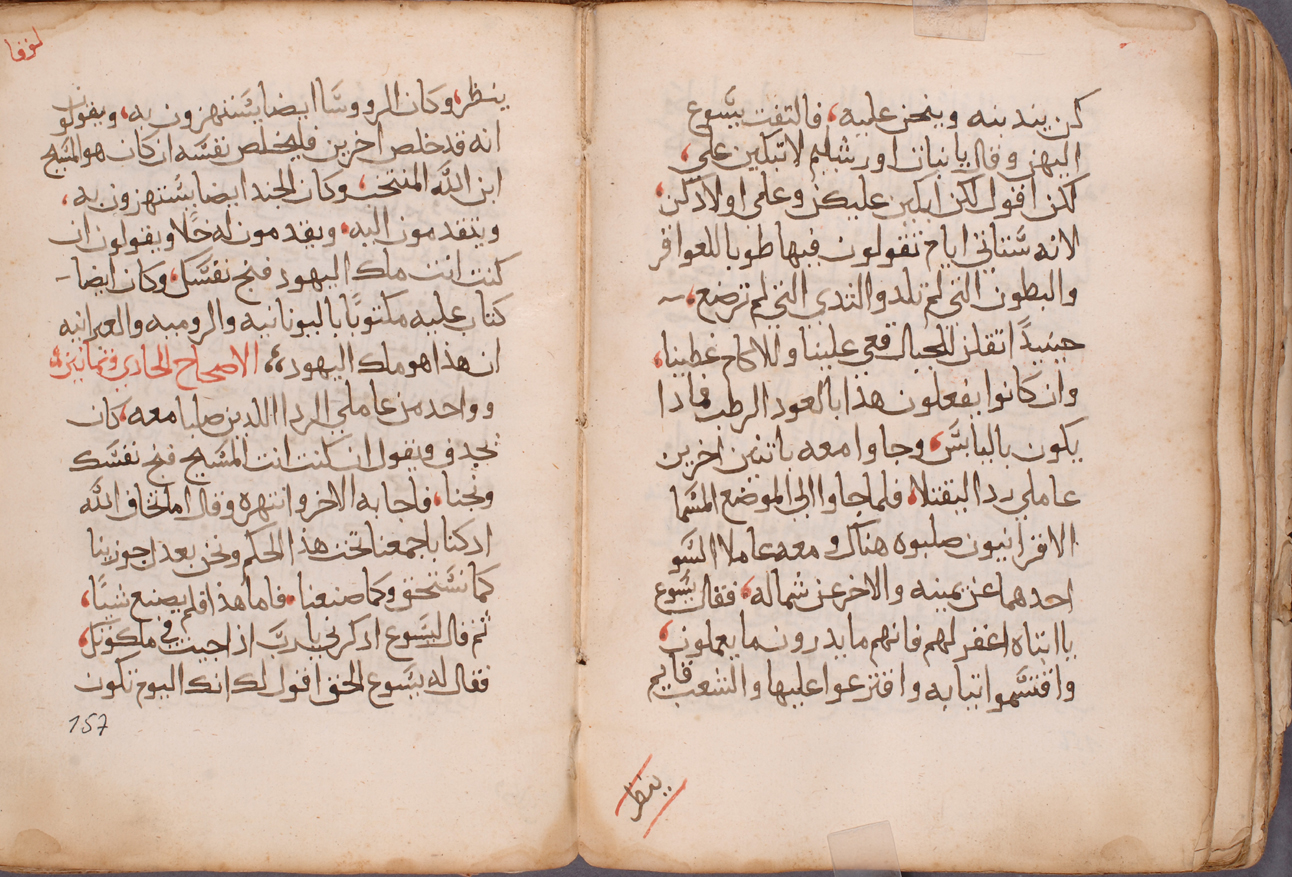 كن يندبنه وينحن عليه، فالتفت يسوع
اليهن وقال يا بنات اورشليم لا تبكين علي،
لكن اقول لكن ابكين عليكن وعلى اولادكن،
لانه ستاتي ايام تقولون فيها طوبا للعواقر
والبطون التي لم تلد والثدي التي لم ترضع، ~
حينيذًا تقلن للجبال قعي علينا وللاكام غطينا،
وان كانوا يفعلون هذا بالعود الرطب فماذا
يكون باليابس، وجاوا معه باثنين اخرين
عاملي ردا ليقتلا، فلما جاوا الي الموضع المسما
الاقرانيون صلبوه هناك ومعه عاملا السو
احدهما عن يمينه والاخر عن شماله، فقال يسوع
يا ابتاه اغفر لهم فانهم ما يدرون ما يعملون،
واقتسموا تيابه واقترعوا عليها والشعب قايم
ينظر
لوقا
ينظر، وكان الرووسا ايضا يستهزون به، ويقولون
انه قد خلص اخرين فليخلص نفسه ان كان هو المسيح
ابن الله المنتخب، وكان الجند ايضا يستهزون به،
ويتقدمون اليه، ويقدمون له خلا ويقولون ان
كنت انت ملك اليهود فنج نفسك، وكان ايضا -
كتاب عليه مكتوبًا باليونانيه والروميه والعبرانيه
ان هذا هو ملك اليهود، الاصحاح الحادي وتمانين
وواحد من عاملي الردا اللدين صلبا معه، كان
يجدف ويقول ان كنت انت المسيح فنج نفسك
ونجنا، فاجابه الاخر وانتهره وقال اما تخاف الله
ادكنا باجمعنا تحت هذا الحكم ونحن بعد اجوزينا
كما نستحق وكما صنعنا، فاما هذا فلم يصنع شيًا،
ثم قال ليسوع ادكرني يا رب اذا جيت في ملكوتك،
فقال له يسوع الحق اقول لك انك اليوم تكون
157